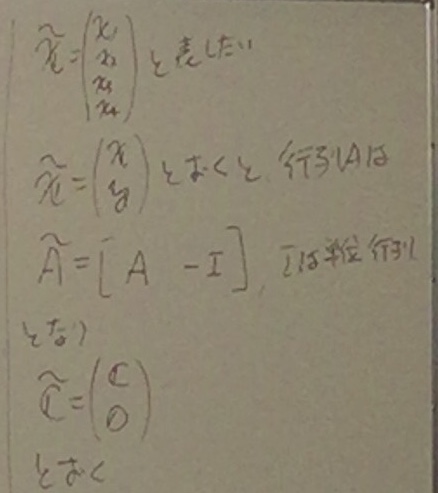 x̃ = (x₁ x₂ x₃ x₄) と表したい
x̃ = (x y) とおくと、行列Aは
Ã = [A -I], Iは単位行列
となり
c̃ = (c 0)
とおく